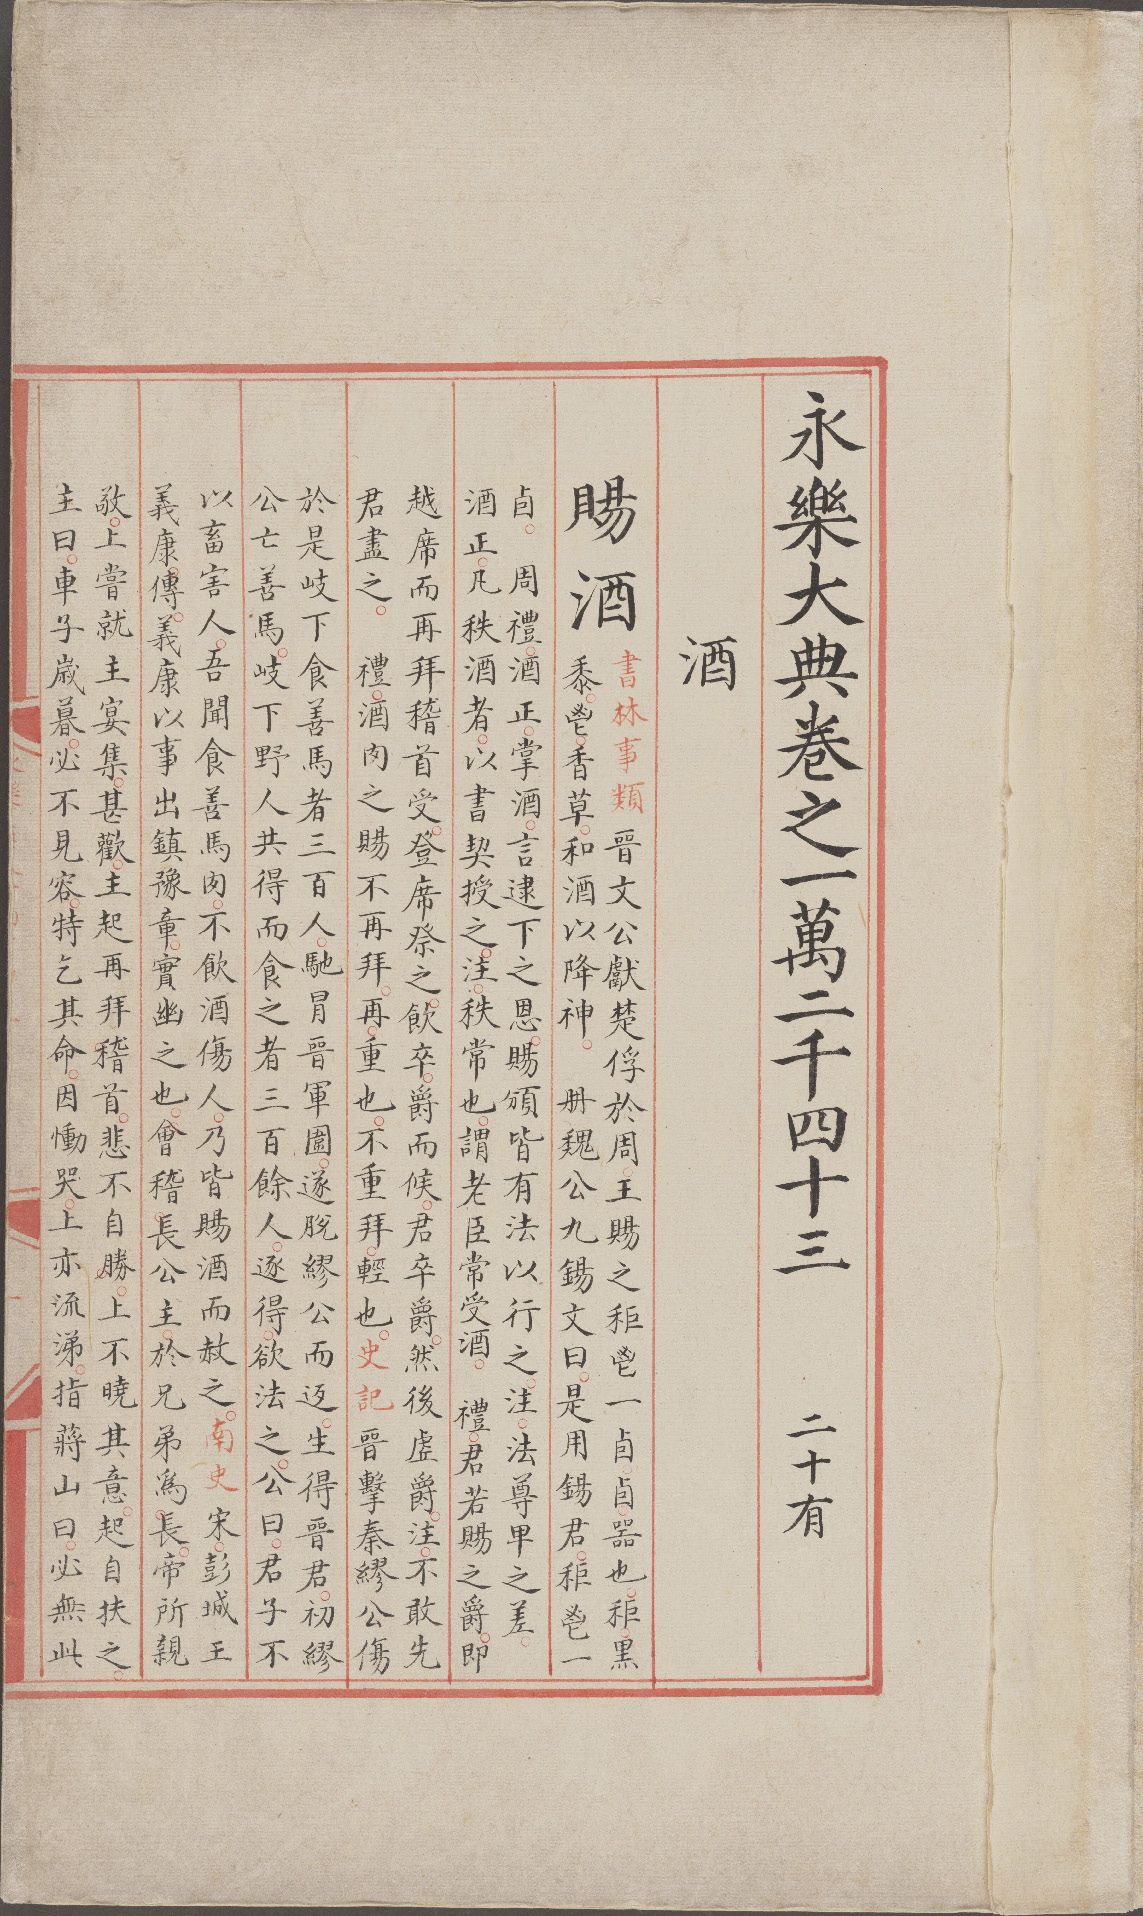 永樂大典卷之一萬二千四十三 二十有
酒
賜酒
書林事類 晉文公獻楚俘於周王賜之秬鬯一卣卣器也秬黑
黍鬯香草和酒以降神 册魏公九錫文曰是用錫君秬鬯一
卣 周禮酒正掌酒言逮下之恩賜頒皆有法以行之注法尊卑之差
酒正凡秩酒者以書契授之注秩常也謂老臣常受酒 禮君若賜之爵即
越席而再拜稽首受登席祭之飲卒爵而俟君卒爵然後虛爵注不敢先
君盡之 禮酒肉之賜不再拜再重也不重拜輕也史記晉擊秦繆公傷
於是岐下食善馬者三百人馳冒晉軍圍遂脫繆公而返生得晉君初繆
公亡善馬岐下野人共得而食之者三百餘人逐得欲法之公曰君子不
以畜害人吾聞食善馬肉不飲酒傷人乃皆賜酒而赦之南史宋彭城王
義康傳義康以事出鎮豫章實幽之也會稽長公主於兄弟為長帝所親
敬上嘗就主宴集甚歡主起再拜稽首悲不自勝上不曉其意起自扶之
主曰車子歲暮必不見容特乞其命因慟哭上亦流涕指蔣山曰必無此